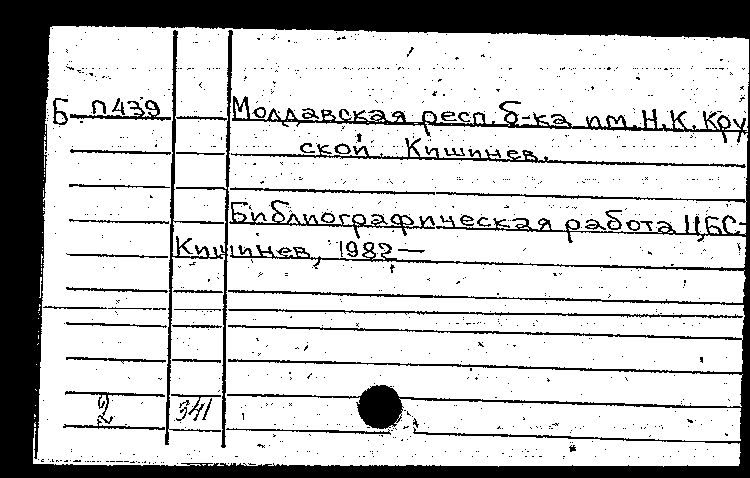 Б П439 Молдавская респ. б-ка им. Н.К. Кру
ской. Кишинев.
Библиографическая работа ЦБС-
Кишинев, 1982—
2 341